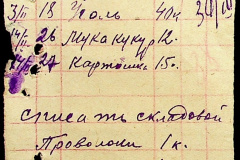 3/II 18 Уголь 40 к
14/II 26 Мука кукур 12.
14/II 27 Картошка 15.
списать складовой
Проволоки 1 к.